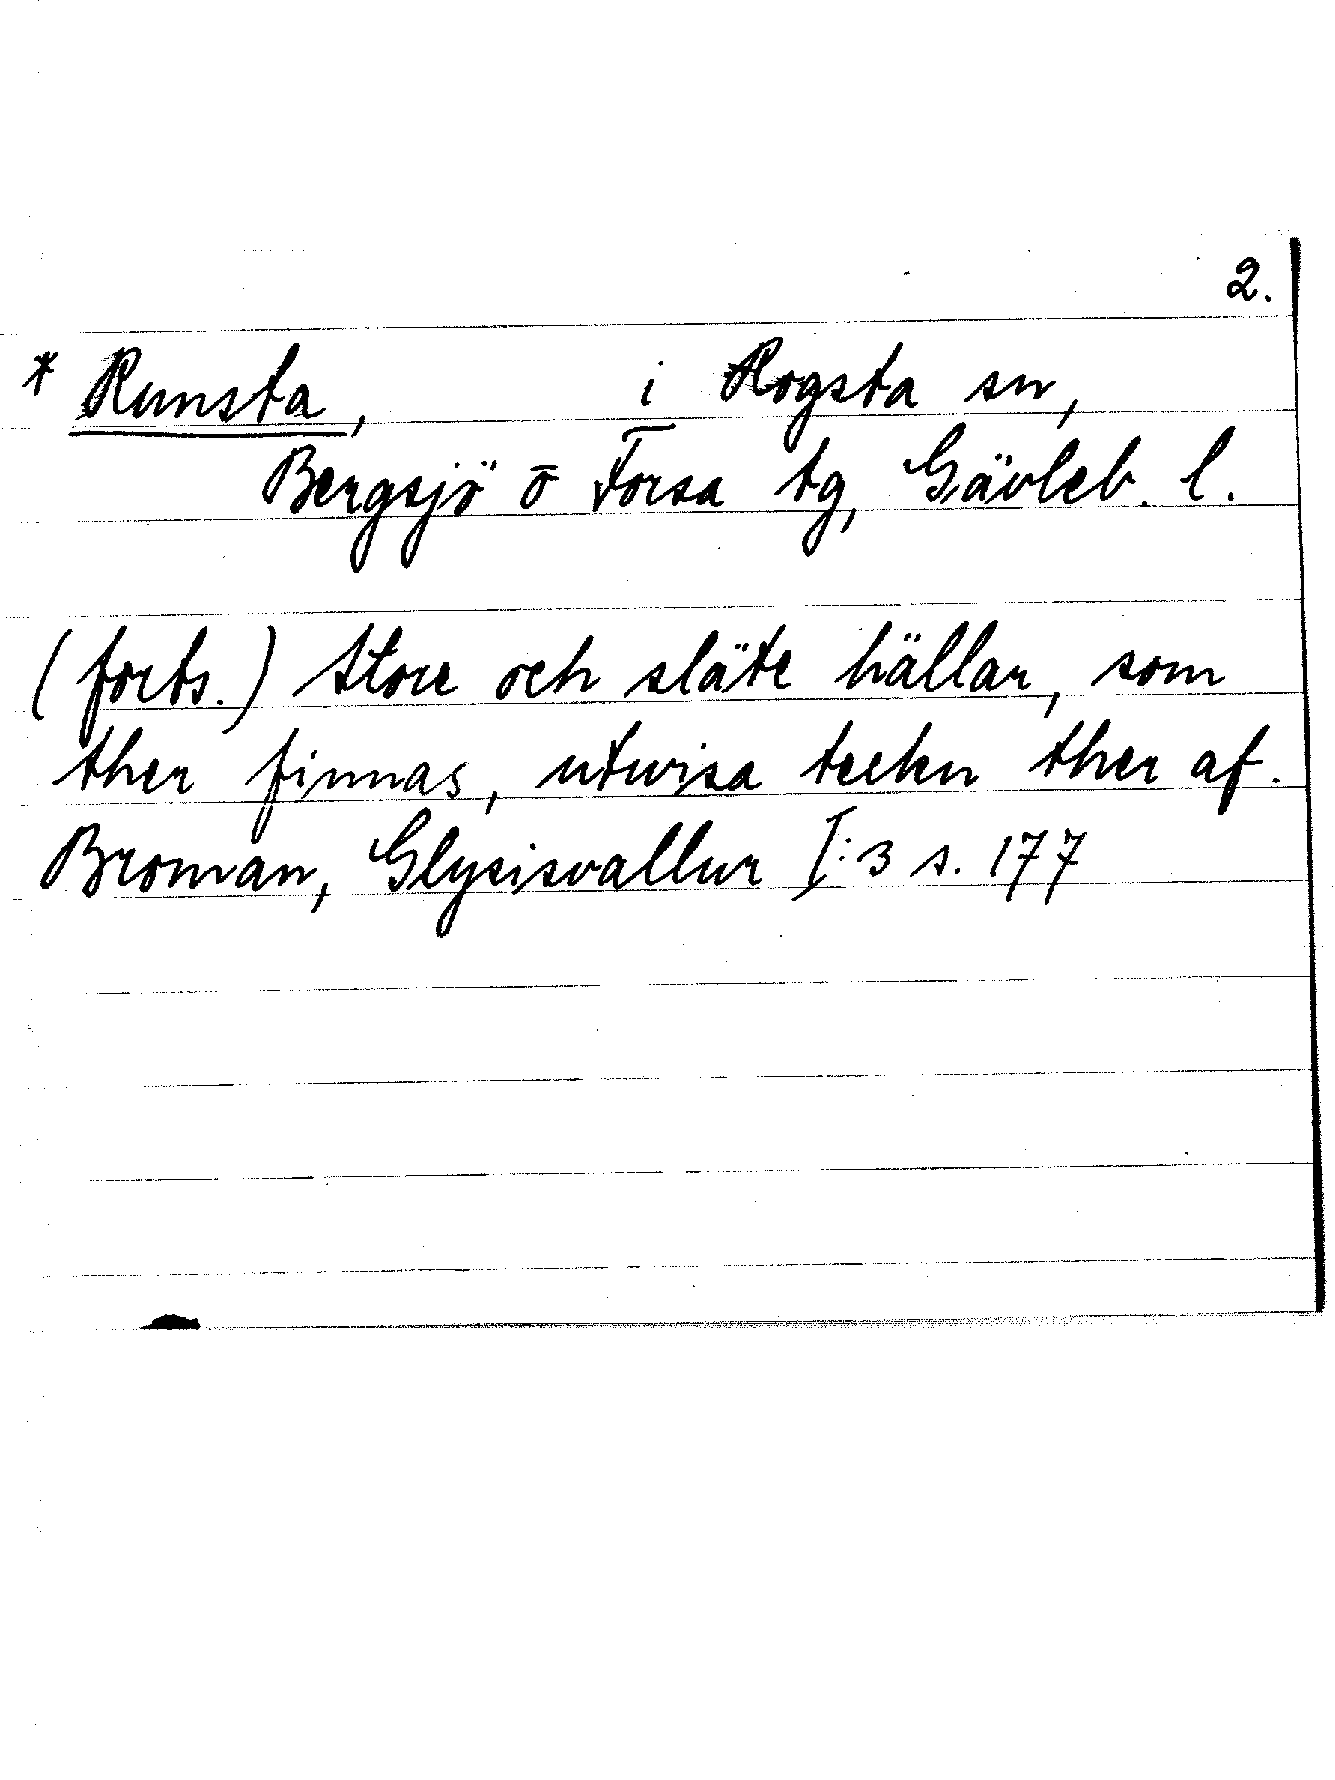 2.
* Runsta, i Rogsta sn,
Bergsjö o Forsa tg, Gävleb. l.
(forts.) Store och släte hällar, som
ther finnas, utwisa teckn ther af.
Broman, Glysisvallur I:3 s. 177